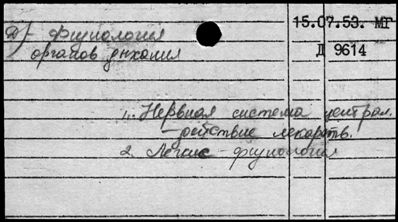 Д) Физиология
органов дыхания
15.07.53. МГ
Д 9614
1. Нервная система централ.
- действие лекарств.
2. Легкие - физиология